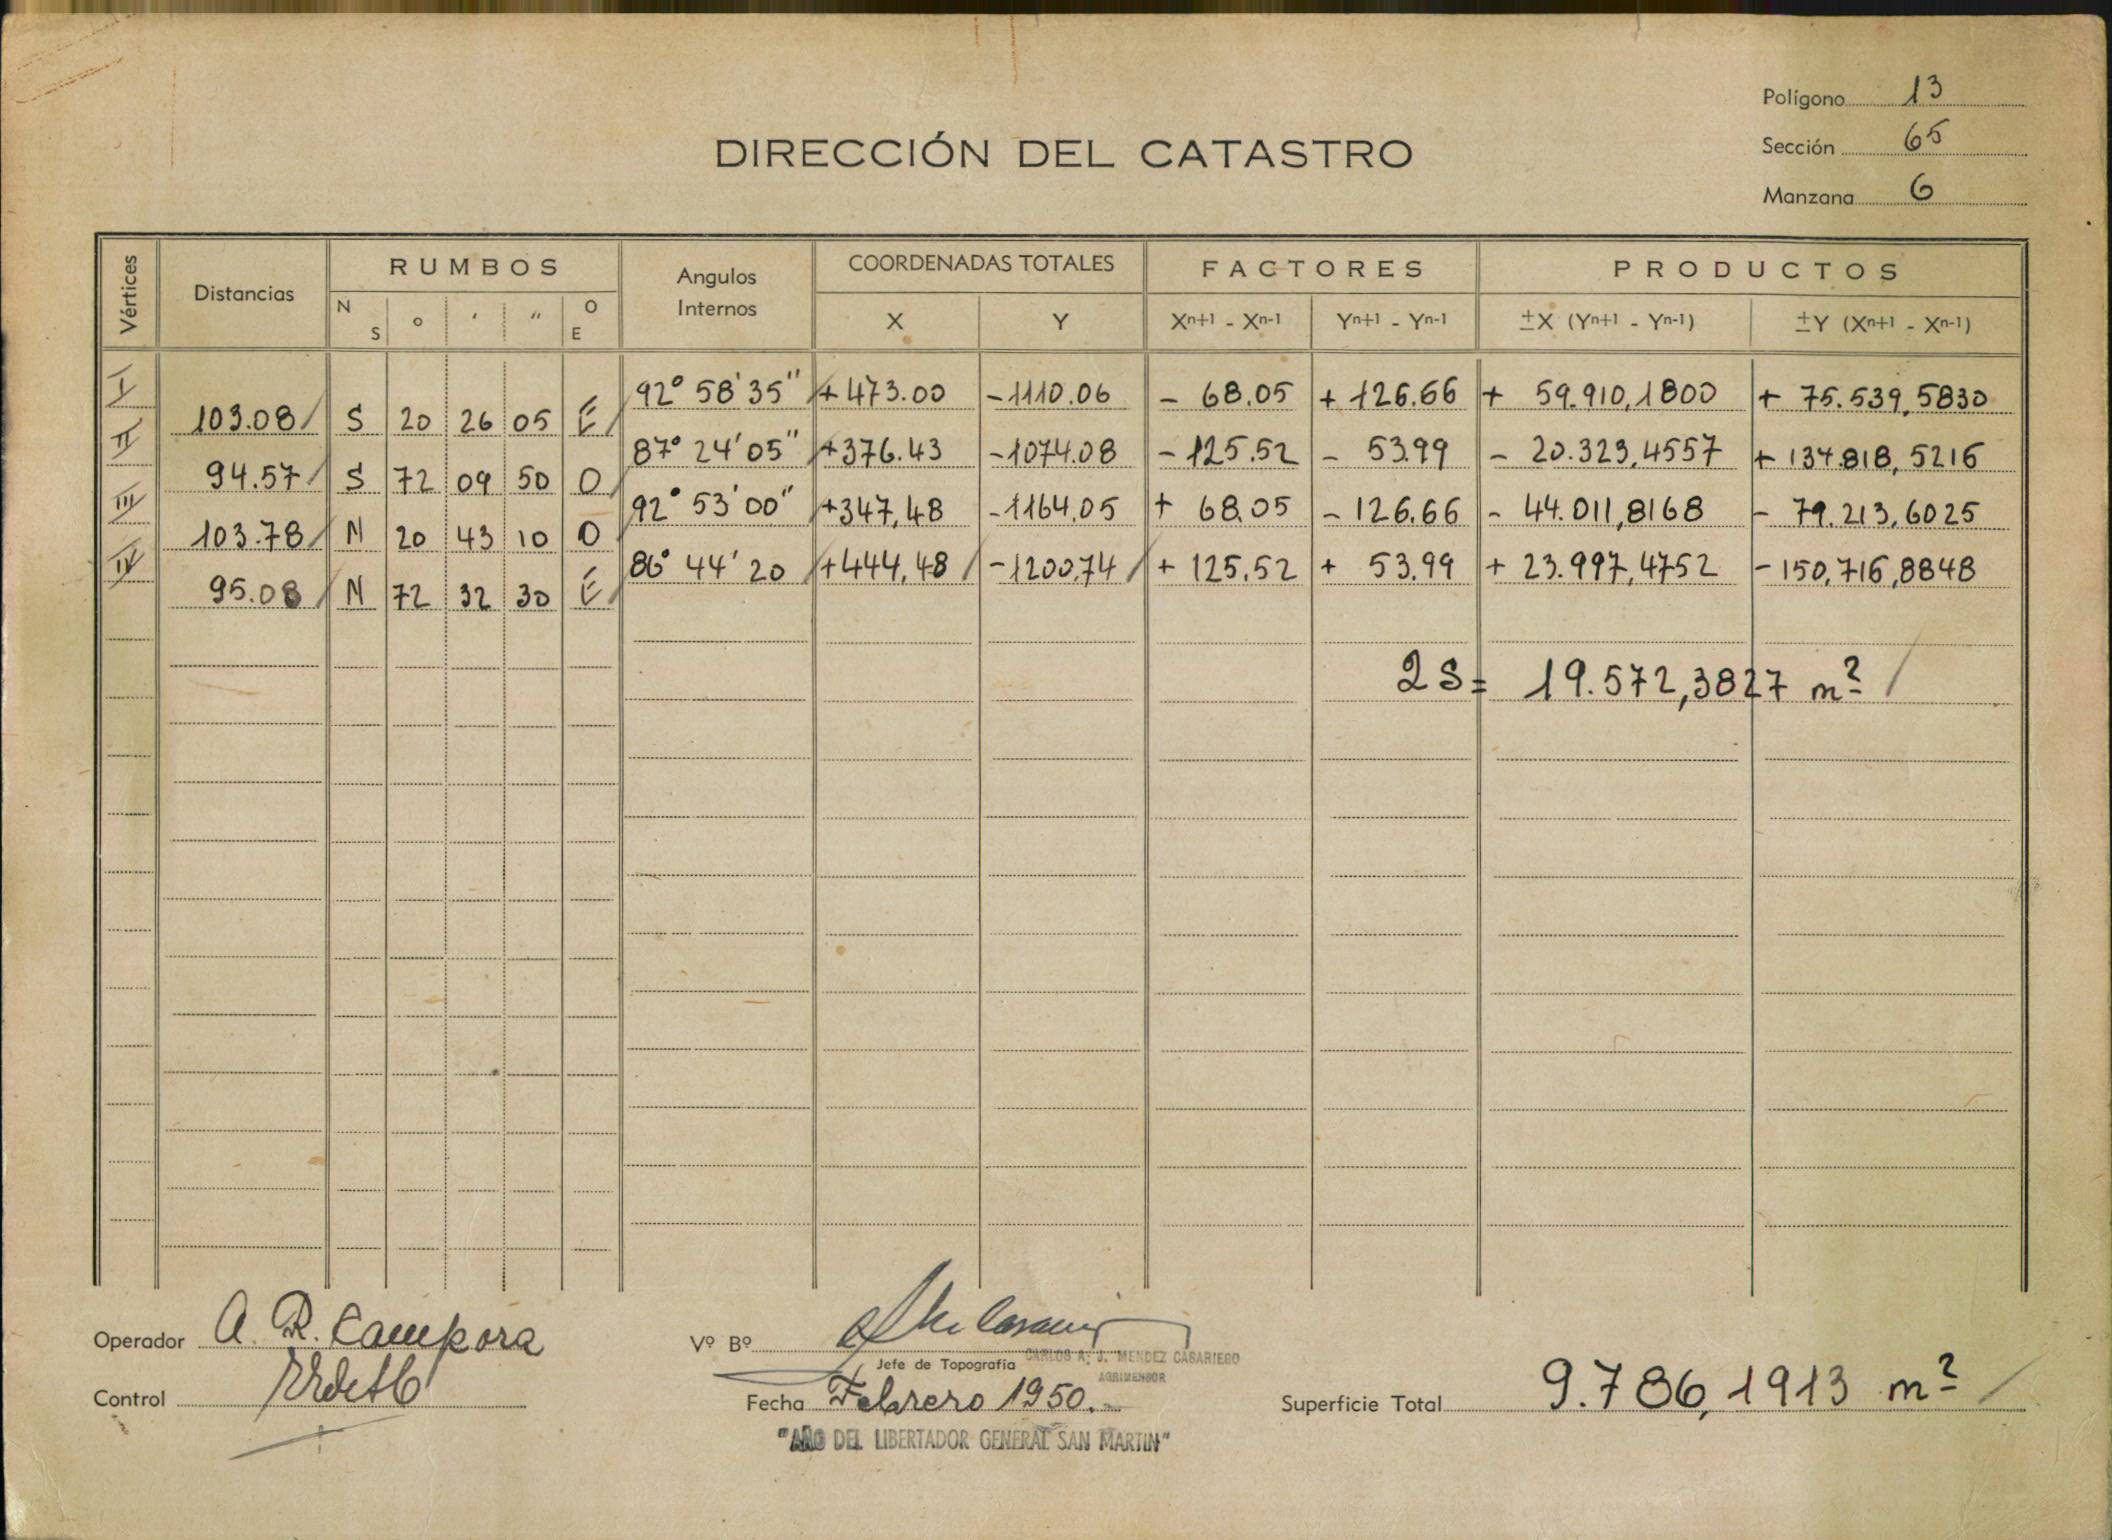 Polígono 13
Sección 65
Manzana 6
DIRECCIÓN DEL CATASTRO
Vértices Distancias RUMBOS Angulos Internos COORDENADAS TOTALES FACTORES PRODUCTOS
N S ° ′ ″ O E X Y Xn+1 - Xn-1 Yn+1 - Yn-1 ±X (Yn+1 - Yn-1) ±Y (Xn+1 - Xn-1)
I 92° 58' 35" +473.00 -1110.06 - 68.05 + 126.66 + 59.910,1800 + 75.539,5830
103.08 S 20 26 05 E
II 87° 24' 05" +376.43 -1074.08 -125.52 - 53.99 - 20.323,4557 + 134.818,5216
94.57 S 72 09 50 O
III 92° 53' 00" +347,48 -1164,05 + 68.05 - 126.66 - 44.011,8168 - 79.213,6025
103.78 N 20 43 10 O
IV 86° 44' 20 +444,48 -1200,74 + 125.52 + 53.99 + 23.997,4752 -150,716,8848
95.08 N 72 32 30 E
2S= 19.572,3827 m²
Operador A. R. Campora
Control
Vº Bº
Jefe de Topografía CARLOS A. J. MENDEZ CASARIEGO
AGRIMENSOR
Fecha Febrero 1950.-
"AÑO DEL LIBERTADOR GENERAL SAN MARTIN"
Superficie Total 9.786,1913 m²